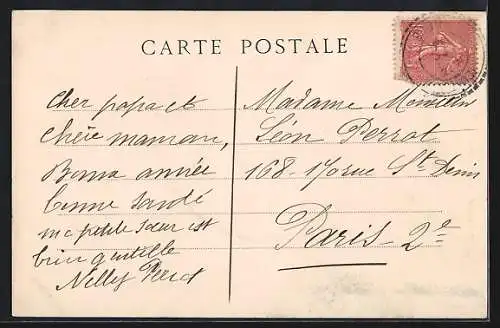 CARTE POSTALE
Cher papa et
chère maman,
Bonne année
bonne santé
ma petite sœur est
bien gentille
Nelly Perrot
Madame
Léon Perrot
168-170 rue St Denis
Paris-2e